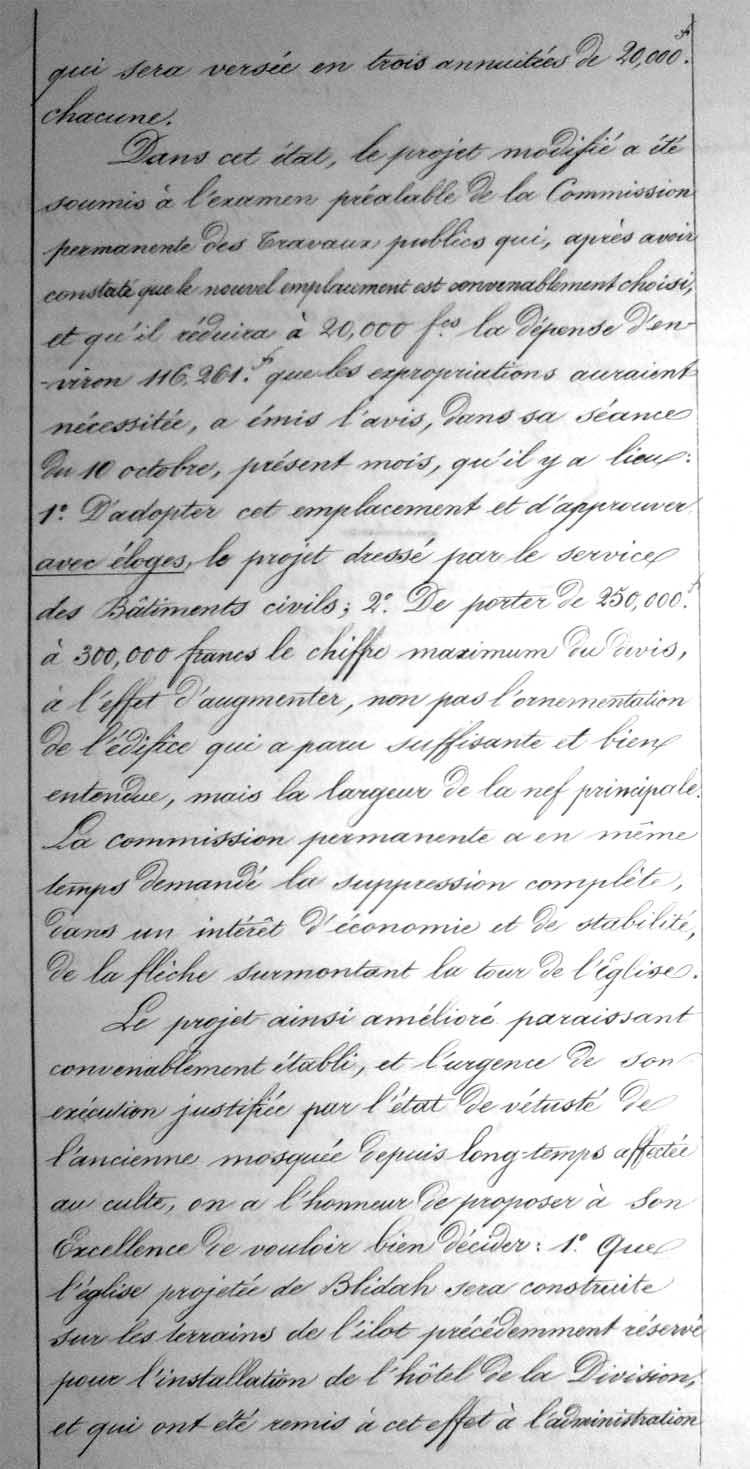 qui sera versée en trois annuitées de 20,000.f
chacune.
Dans cet état, le projet modifié a été
soumis à l'examen préalable de la Commission
permanente des Travaux publics qui, après avoir
constaté que le nouvel emplacement est convenablement choisi,
et qu'il réduira à 20,000 fcs la dépense d'en-
-viron 116,261.f que les expropriations auraient
nécessitée, a émis l'avis, dans sa séance
du 10 octobre, présent mois, qu'il y a lieu:
1º. D'adopter cet emplacement et d'approuver
avec éloges, le projet dressé par le service
des Bâtiments civils; 2º. De porter de 250,000.f
à 300,000 francs le chiffre maximum du devis,
à l'effet d'augmenter, non pas l'ornementation
de l'édifice qui a paru suffisante et bien
entendue, mais la largeur de la nef principale.
La commission permanente a en même
temps demandé la suppression complète,
dans un intérêt d'économie et de stabilité,
de la flèche surmontant la tour de l'Eglise.
Le projet ainsi amélioré paraissant
convenablement établi, et l'urgence de son
exécution justifiée par l'état de vétusté de
l'ancienne mosquée depuis long-temps affectée
au culte, on a l'honneur de proposer à Son
Excellence de vouloir bien décider: 1º Que
l'église projetée de Blidah sera construite
sur les terrains de l'ilot précédemment réservé
pour l'installation de l'hôtel de la Division,
et qui ont été remis à cet effet à l'administration